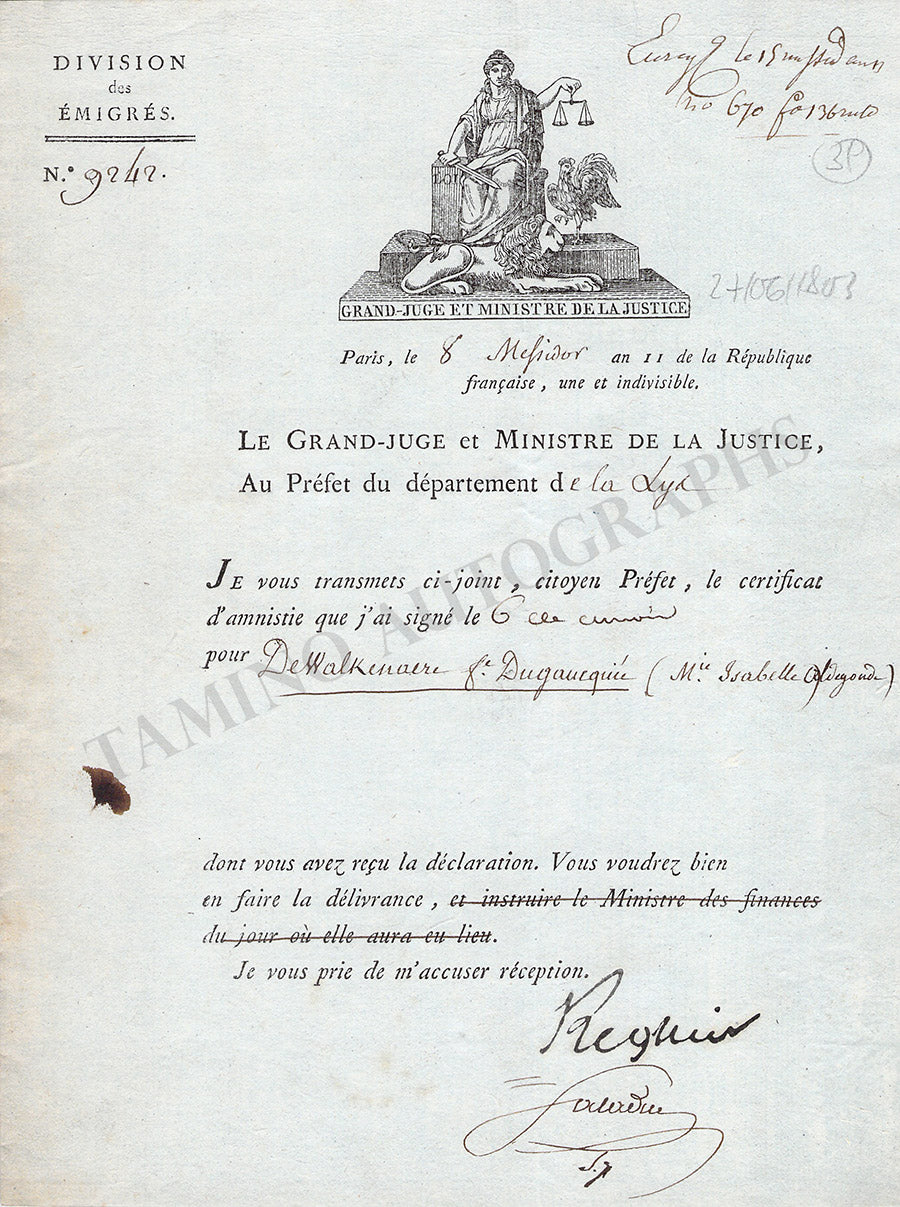 DIVISION
des
ÉMIGRÉS.
N.º 9242.
le 15 an 11
no 670
3P
LOI
GRAND-JUGE ET MINISTRE DE LA JUSTICE
27/06/1803
Paris, le 8 Messidor an 11 de la République
française, une et indivisible.
LE GRAND-JUGE et MINISTRE DE LA JUSTICE,
Au Préfet du département de la Lys
JE vous transmets ci-joint, citoyen Préfet, le certificat
d'amnistie que j'ai signé le 6 de
pour DeWalkenaere fe. Dugaucquié (Mie. Isabelle Aldegonde)
dont vous avez reçu la déclaration. Vous voudrez bien
en faire la délivrance, et instruire le Ministre des finances
du jour où elle aura eu lieu.
Je vous prie de m'accuser réception.
Regnier
TAMINO AUTOGRAPHS